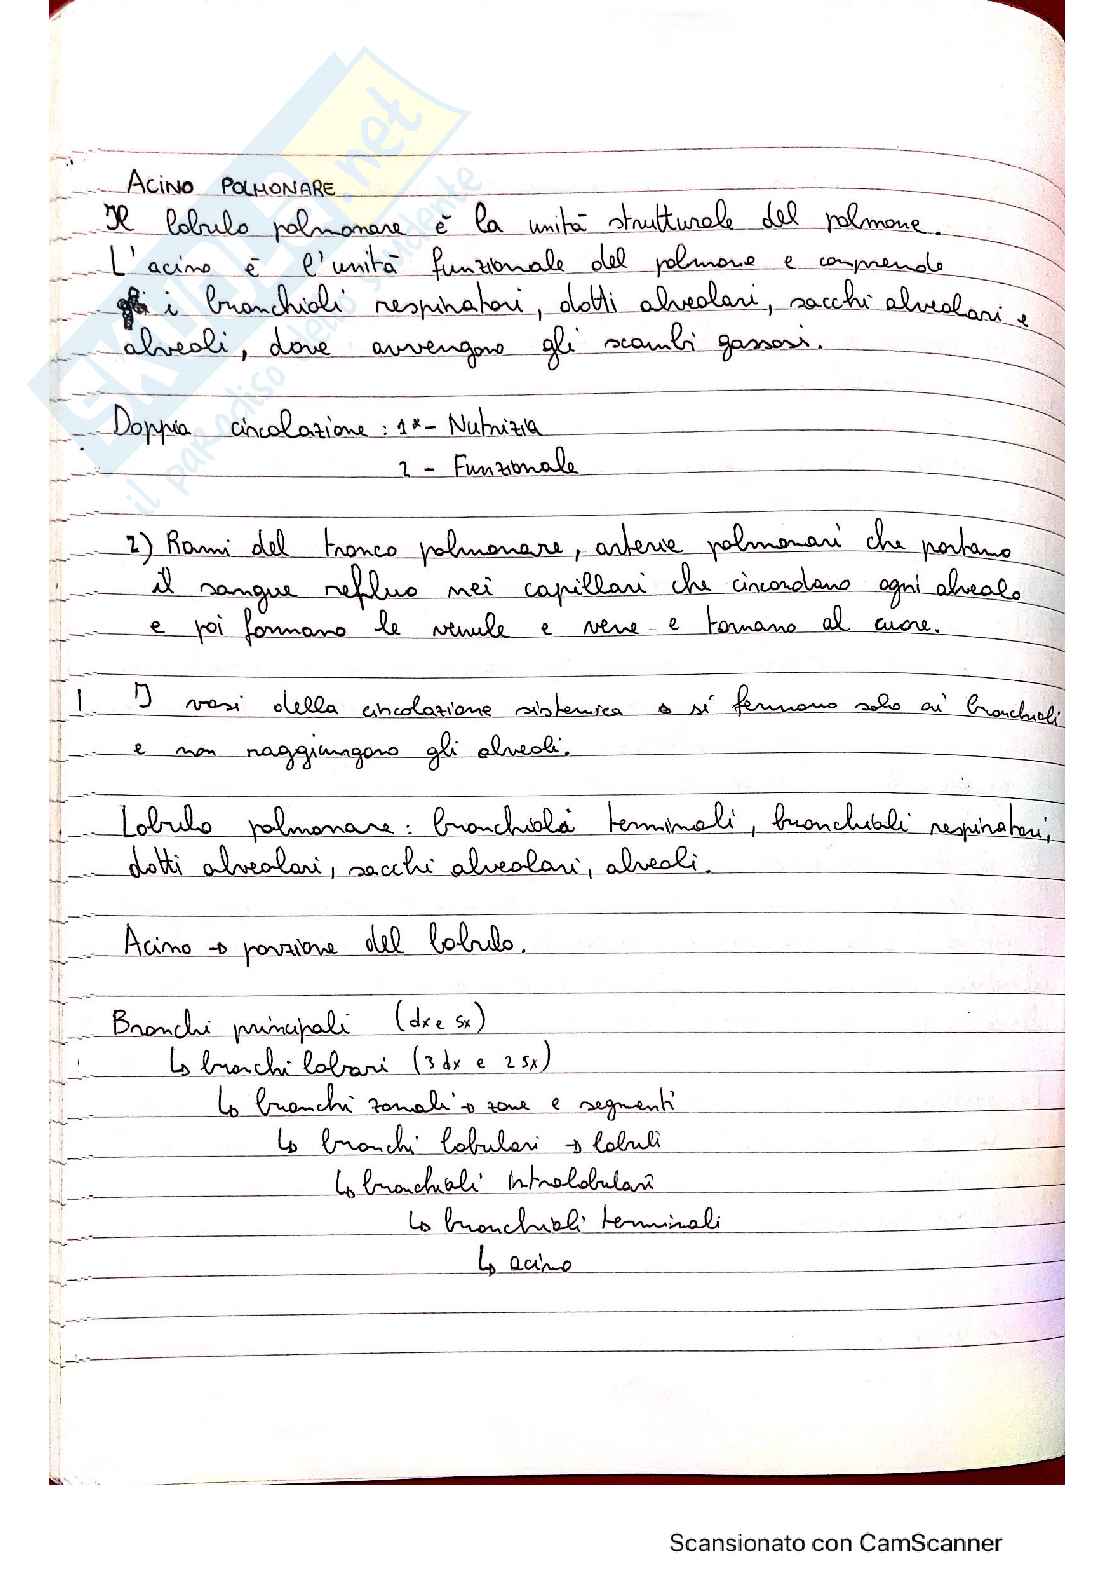 ACINO POLMONARE
Il lobulo polmonare è la unità strutturale del polmone.
L'acino è l'unità funzionale del polmone e comprende
i bronchioli respiratori, dotti alveolari, sacchi alveolari e
alveoli, dove avvengono gli scambi gassosi.
Doppia circolazione: 1 - Nutrizia
2 - Funzionale
2) Rami del tronco polmonare, arterie polmonari che portano
il sangue refluo nei capillari che circondano ogni alveolo
e poi formano le venule e vene e tornano al cuore.
1. I vasi della circolazione sistemica si fermano solo ai bronchioli
e non raggiungono gli alveoli.
Lobulo polmonare: bronchioli terminali, bronchioli respiratori,
dotti alveolari, sacchi alveolari, alveoli.
Acino → porzione del lobulo.
Bronchi principali (dx e sx)
↳ bronchi lobari (3 dx e 2 sx)
↳ bronchi zonali → zone e segmenti
↳ bronchi lobulari → lobuli
↳ bronchioli intralobulari
↳ bronchioli terminali
↳ acino
Skuola.net
il paradiso dello studente
Scansionato con CamScanner